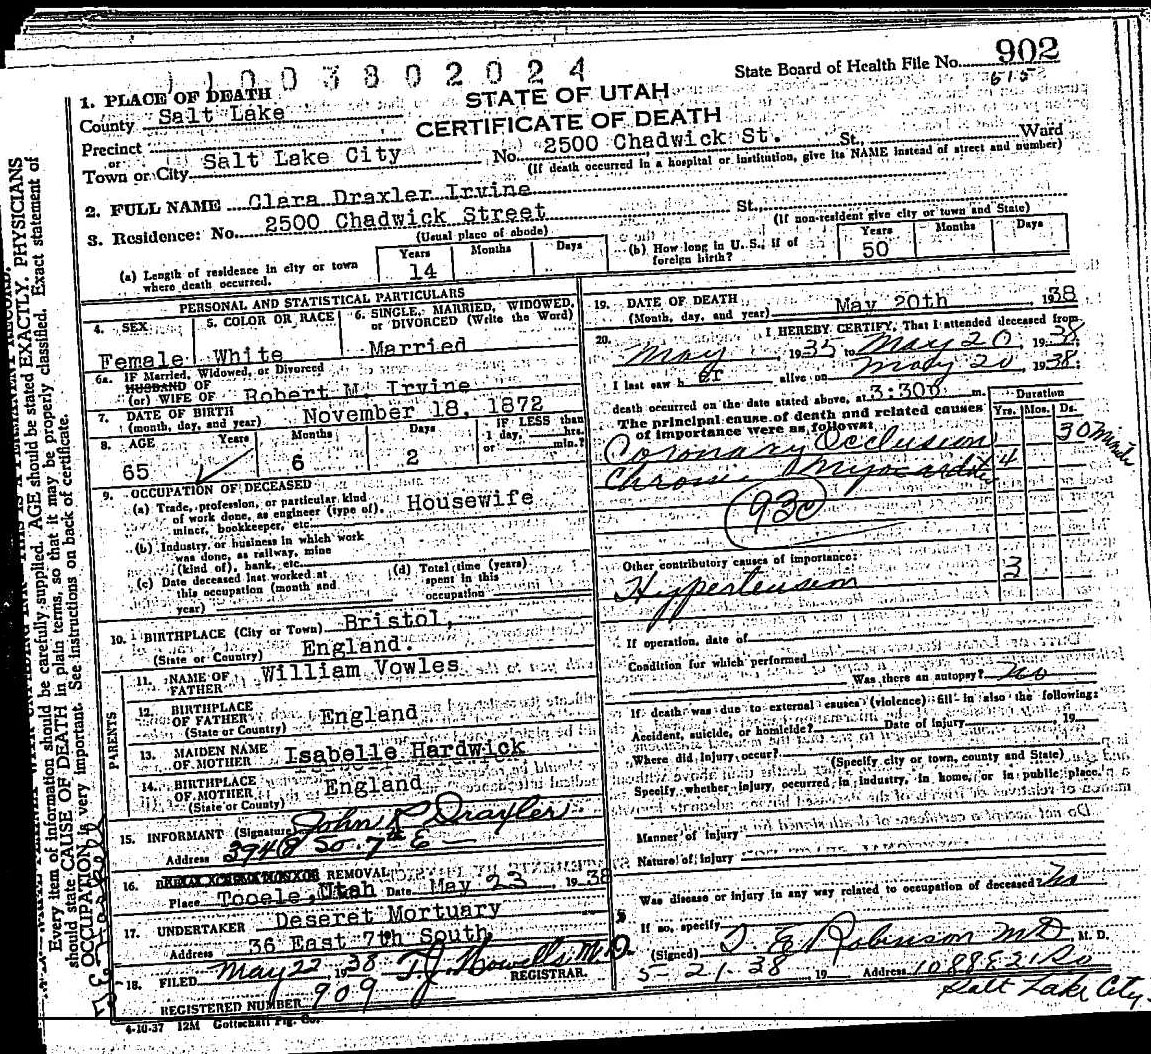 1 1 0 0 3 8 0 2 0 2 4
State Board of Health File No. 902
615
STATE OF UTAH
CERTIFICATE OF DEATH
1. PLACE OF DEATH
County Salt Lake
Precinct
or
Town or City Salt Lake City No. 2500 Chadwick St. St. Ward
(If death occurred in a hospital or institution, give its NAME instead of street and number)
2. FULL NAME Clara Draxler Irvine
3. Residence: No. 2500 Chadwick Street St.
(Usual place of abode) (If non-resident give city or town and State)
(a) Length of residence in city or town where death occurred. Years 14 Months Days
(b) How long in U. S., if of foreign birth? Years 50 Months Days
PERSONAL AND STATISTICAL PARTICULARS
4. SEX Female
5. COLOR OR RACE White
6. SINGLE, MARRIED, WIDOWED, or DIVORCED (Write the Word) Married
6a. IF Married, Widowed, or Divorced
HUSBAND OF
(or) WIFE OF Robert M. Irvine
7. DATE OF BIRTH
(month, day, and year) November 18, 1872
8. AGE Years 65 Months 6 Days 2
IF LESS than
1 day, hrs.
or min.?
9. OCCUPATION OF DECEASED
(a) Trade, profession, or particular kind
of work done, as engineer (type of),
miner, bookkeeper, etc. Housewife
(b) Industry, or business in which work
was done, as railway, mine
(kind of), bank, etc.
(c) Date deceased last worked at
this occupation (month and
year)
(d) Total time (years)
spent in this
occupation
10. BIRTHPLACE (City or Town) Bristol,
(State or Country) England.
PARENTS
11. NAME OF FATHER William Vowles
12. BIRTHPLACE OF FATHER
(State or Country) England
13. MAIDEN NAME OF MOTHER Isabelle Hardwick
14. BIRTHPLACE OF MOTHER
(State or County) England
15. INFORMANT (Signature) John R Draxler
Address 3948 So. 7th E
16. REMOVAL
Place Tooele, Utah Date May 23, 1938
17. UNDERTAKER Deseret Mortuary
Address 36 East 7th South
18. FILED May 22 1938 T J Howells M.D.
REGISTRAR.
REGISTERED NUMBER 909
4-10-37 12M Gottschall Ptg. Co.
19. DATE OF DEATH
(Month, day, and year) May 20th, 1938
20. I HEREBY CERTIFY, That I attended deceased from
May, 1935 to May 20, 1938
I last saw her alive on May 20, 1938
death occurred on the date stated above, at 3:30p m.
The principal cause of death and related causes
of importance were as follows:
Duration
Yrs. Mos. Ds.
Coronary Occlusion 30 Minute
Chronic Myocarditis 4
930
Other contributory causes of importance:
Hypertension 3
If operation, date of
Condition for which performed
Was there an autopsy? No
If death was due to external causes (violence) fill in also the following:
Accident, suicide, or homicide? Date of injury, 19
Where did injury occur? (Specify city or town, county and State)
Specify whether injury occurred in industry, in home, or in public place.
Manner of injury
Nature of injury
Was disease or injury in any way related to occupation of deceased? No
If so, specify
(Signed) T E Robinson MD M. D.
5-21-38 19 Address 1088 E 21 So
Salt Lake City.
Every item of information should be carefully supplied. AGE should be stated EXACTLY. PHYSICIANS
should state CAUSE OF DEATH in plain terms, so that it may be properly classified. Exact statement of
OCCUPATION is very important. See instructions on back of certificate.